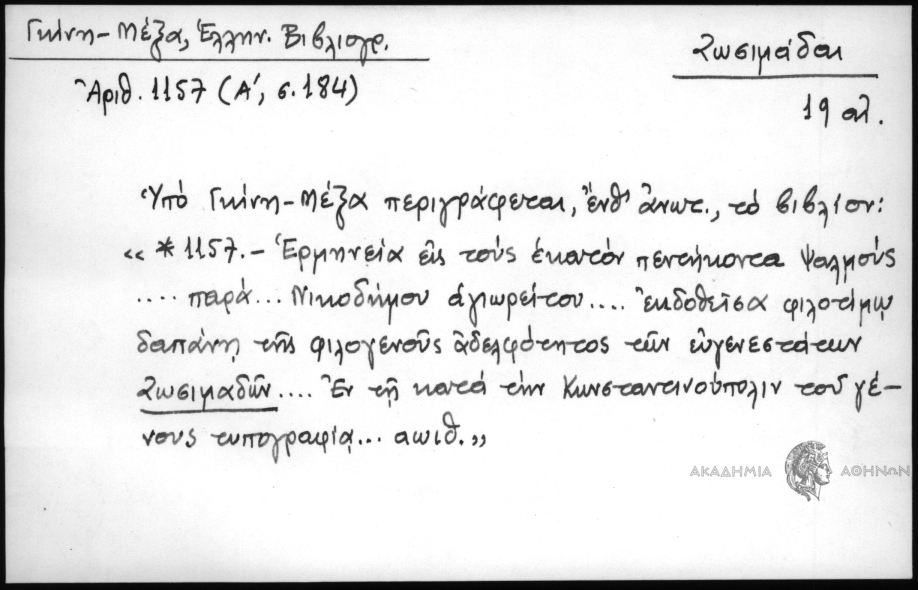 Γκίνη-Μέξα, Ἑλλην. Βιβλιογρ.
Ζωσιμάδαι
Ἀριθ. 1157 (Α΄, σ. 184)
19 αἰ.
Ὑπό Γκίνη-Μέξα περιγράφεται, ἔνθ' ἄνωτ., τό βιβλίον:
« * 1157. - Ἑρμηνεία εἰς τούς ἑκατόν πεντήκοντα Ψαλμούς
.... παρά... Νικοδήμου ἁγιωρείτου.... ἐκδοθεῖσα φιλοτίμῳ
δαπάνῃ τῆς φιλογενοῦς ἀδελφότητος τῶν εὐγενεστάτων
Ζωσιμαδῶν .... Ἐν τῇ κατά τήν Κωνσταντινούπολιν τοῦ γέ-
νους τυπογραφίᾳ... αωιθ.»
ΑΚΑΔΗΜΙΑ ΑΘΗΝΩΝ